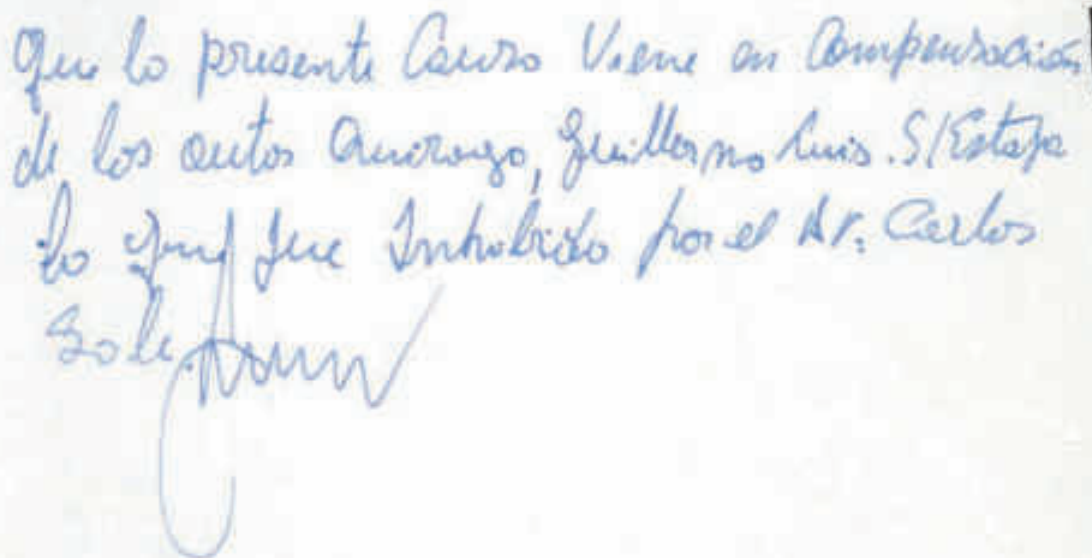 Que la presente Causa Viene en Compensación
de los autos Quiroga, Guillermo Luis. S/Estafa
la que fue Inhibido por el Dr. Carlos